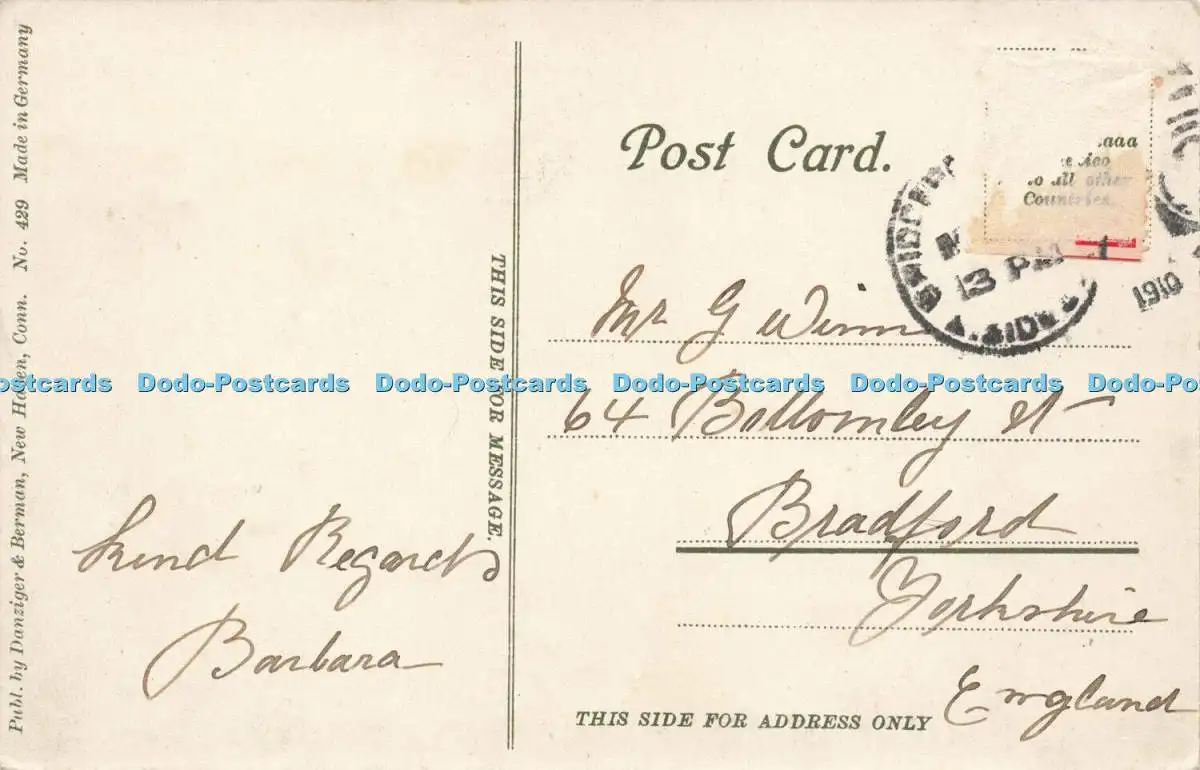 Publ. by Danziger & Berman, New Haven, Conn. No. 429 Made in Germany
THIS SIDE FOR MESSAGE.
Kind Regards
Barbara
Post Card.
to all other
Countries.
3 PM
1910
Mr G Winn
64 Bottomley St
Bradford
Yorkshire
England
THIS SIDE FOR ADDRESS ONLY
Dodo-Postcards Dodo-Postcards Dodo-Postcards Dodo-Postcards Dodo-Postcards